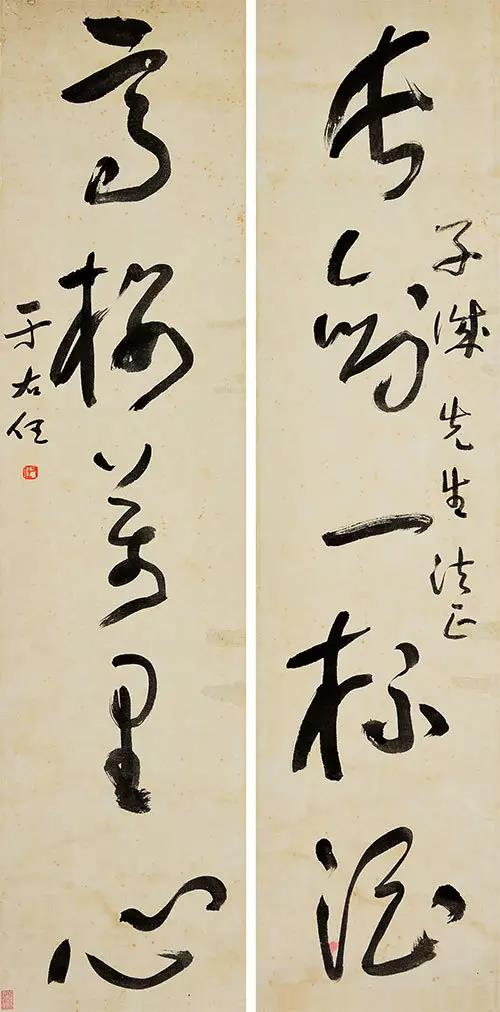 子 先生法正
長劍一杯酒
高樓萬里心
于右任